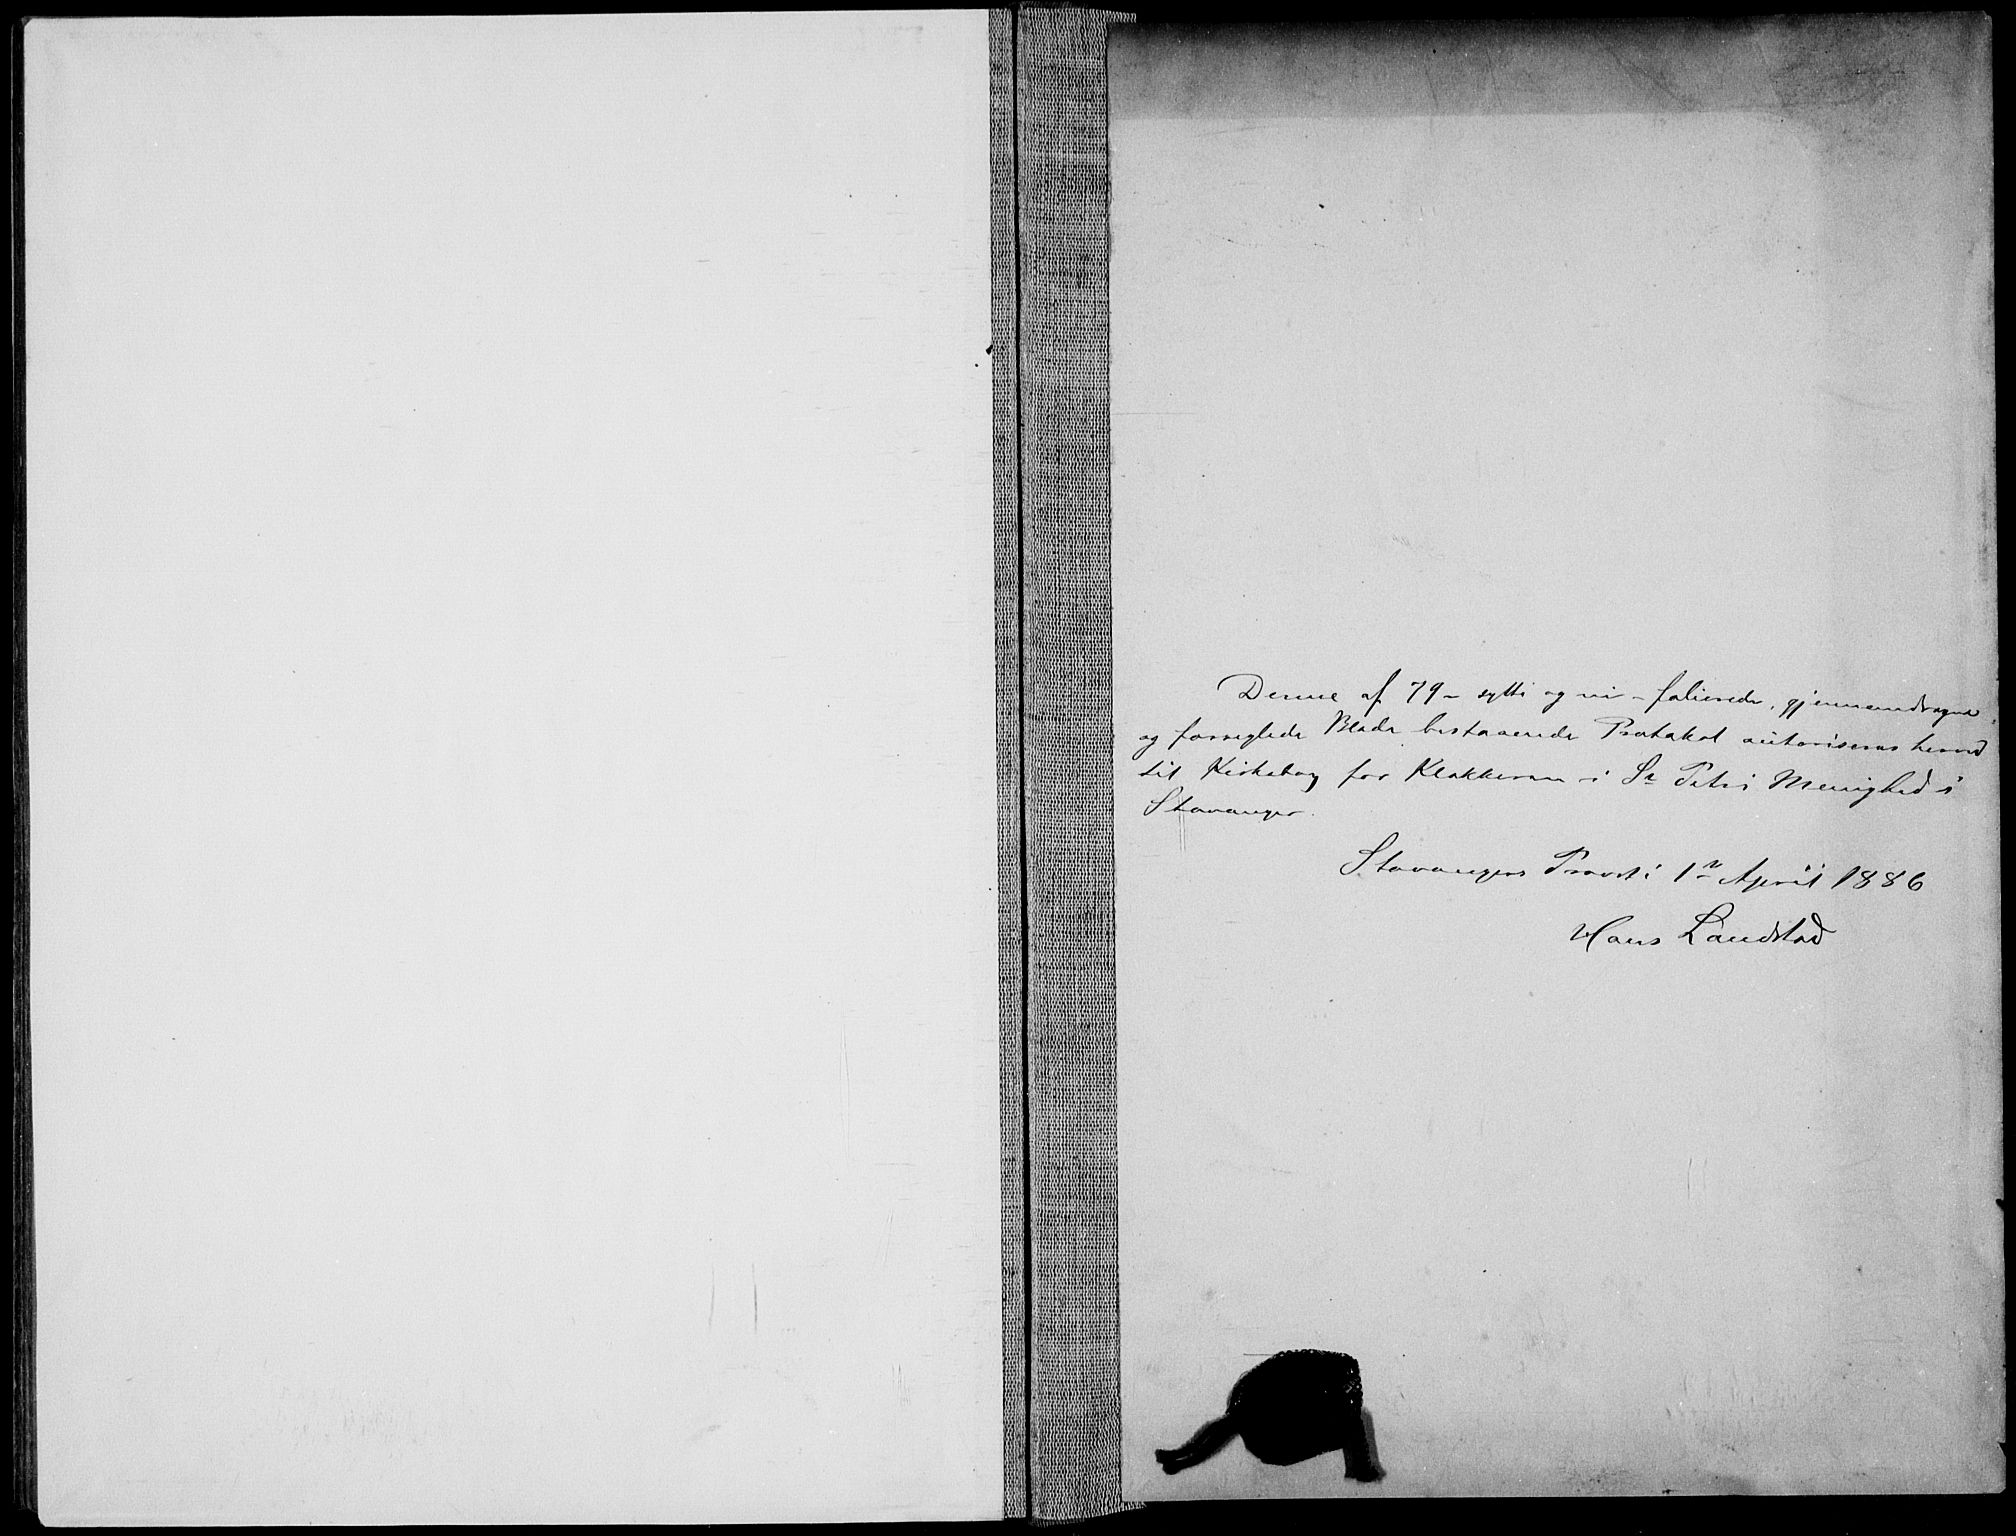 Denne af 79 - sytti og ni - folierede, gjennemdragne
og forseglede Blade bestaaende Protokol autoriseres herved
til Kirkebog for Klokkeren i St Petri Menighed i
Stavanger.
Stavangers Provsti 1n April 1886
Hans Landstad